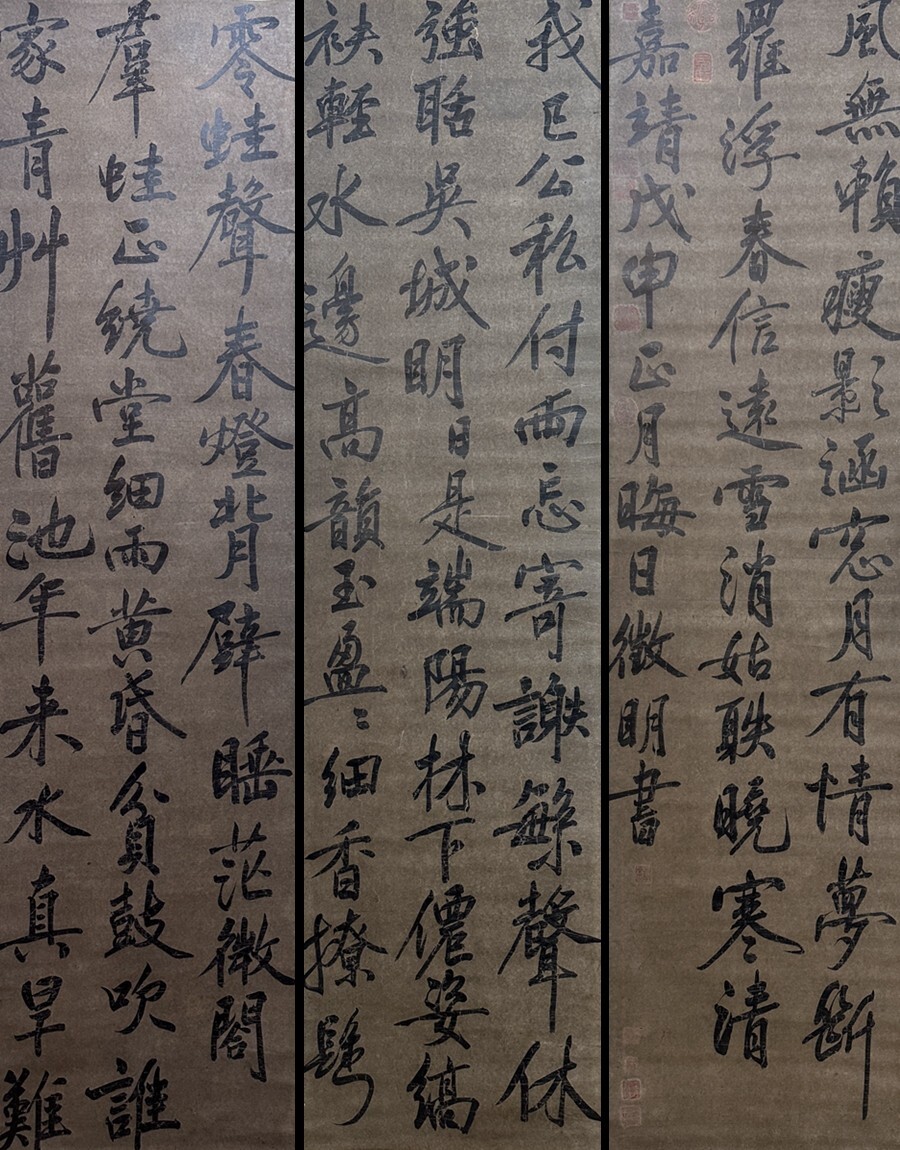 零蛙聲春燈背壁睡茫微閣
羣蛙正繞堂細雨黄昏貧鼓吹誰
家青艸舊池年来水真旱難
我已公私付兩忘寄謝繁聲休
強聒吳城明日是端陽林下僊姿縞
袂輕水邊高韻玉盈〻細香撩鬢
風無賴瘦影涵窓月有情夢斷
羅浮春信遠雪消姑聅曉寒清
嘉靖戊申正月晦日徵明書